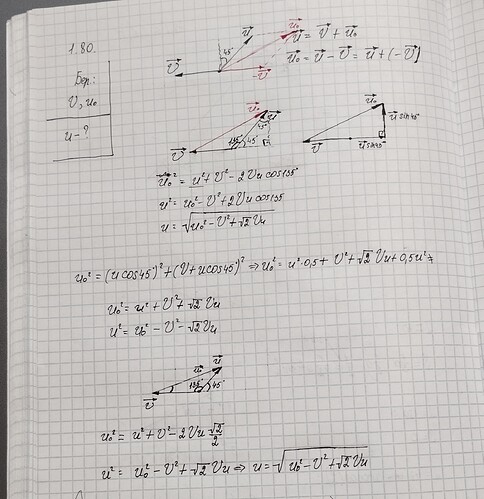 1.80.
Бер:
V, u₀
u - ?
45°
u⃗
u⃗₀
V⃗
-V⃗
u⃗ = V⃗ + u⃗₀
u⃗₀ = u⃗ - V⃗ = u⃗ + (-V⃗)
u⃗₀
u⃗
45°
V⃗
135°
45°
u⃗₀
u⃗ sin45°
V⃗
u⃗ sin45°
u⃗₀² = u² + V² - 2Vu cos135°
u² = u₀² - V² + 2Vu cos135
u = √(u₀² - V² + √2 Vu)
u₀² = (u cos45°)² + (V + u cos45°)² ⇒ u₀² = u²·0,5 + V² + √2 Vu + 0,5u² ⇒
u₀² = u² + V² + √2 Vu
u² = u₀² - V² - √2 Vu
u⃗
u₀
135°
45°
V⃗
u₀² = u² + V² - 2Vu √2/2
u² = u₀² - V² + √2 Vu ⇒ u = √(u₀² - V² + √2 Vu)